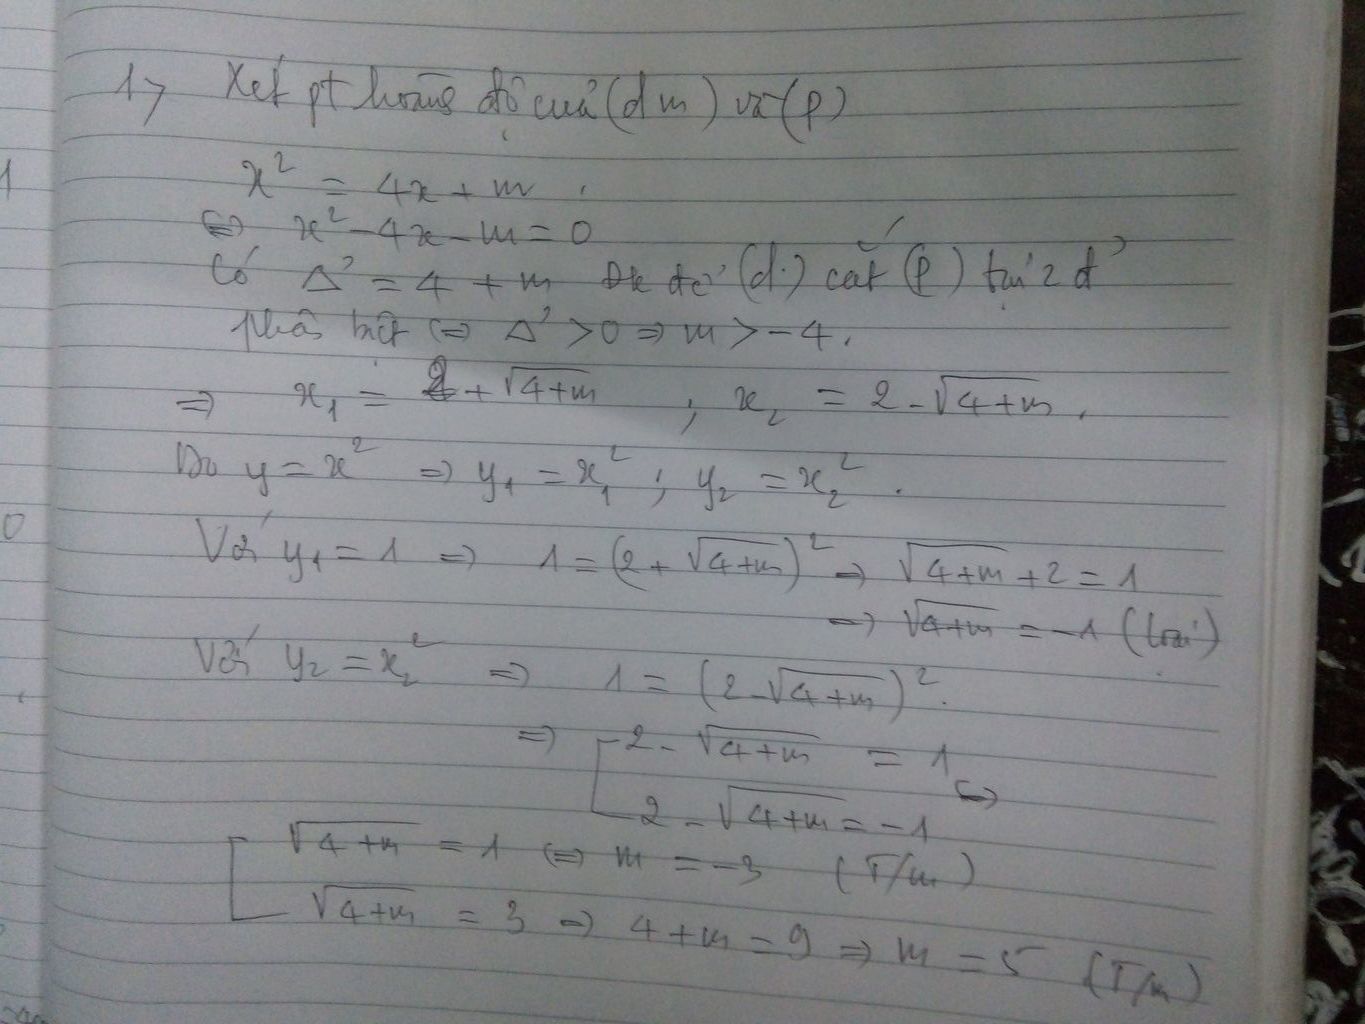 1> Xét pt hoành độ của (dm) và (p)
x² = 4x + m .
⇔ x² - 4x - m = 0
Có Δ' = 4 + m để (d) cắt (P) tại 2 đ'
phân biệt ⇔ Δ' > 0 ⇒ m > -4.
⇒ x₁ = 2 + √(4+m) ; x₂ = 2 - √(4+m) .
Do y = x² ⇒ y₁ = x₁² ; y₂ = x₂² .
Với y₁ = 1 ⇒ 1 = (2 + √(4+m))² ⇒ √(4+m) + 2 = 1
⇒ √(4+m) = -1 (loại)
Với y₂ = x₂² ⇒ 1 = (2 - √(4+m))² .
⇒ [ 2 - √(4+m) = 1 ⇔
2 - √(4+m) = -1
[ √(4+m) = 1 ⇔ m = -3 (T/m)
√(4+m) = 3 ⇒ 4 + m = 9 ⇒ m = 5 (T/m)
1
0